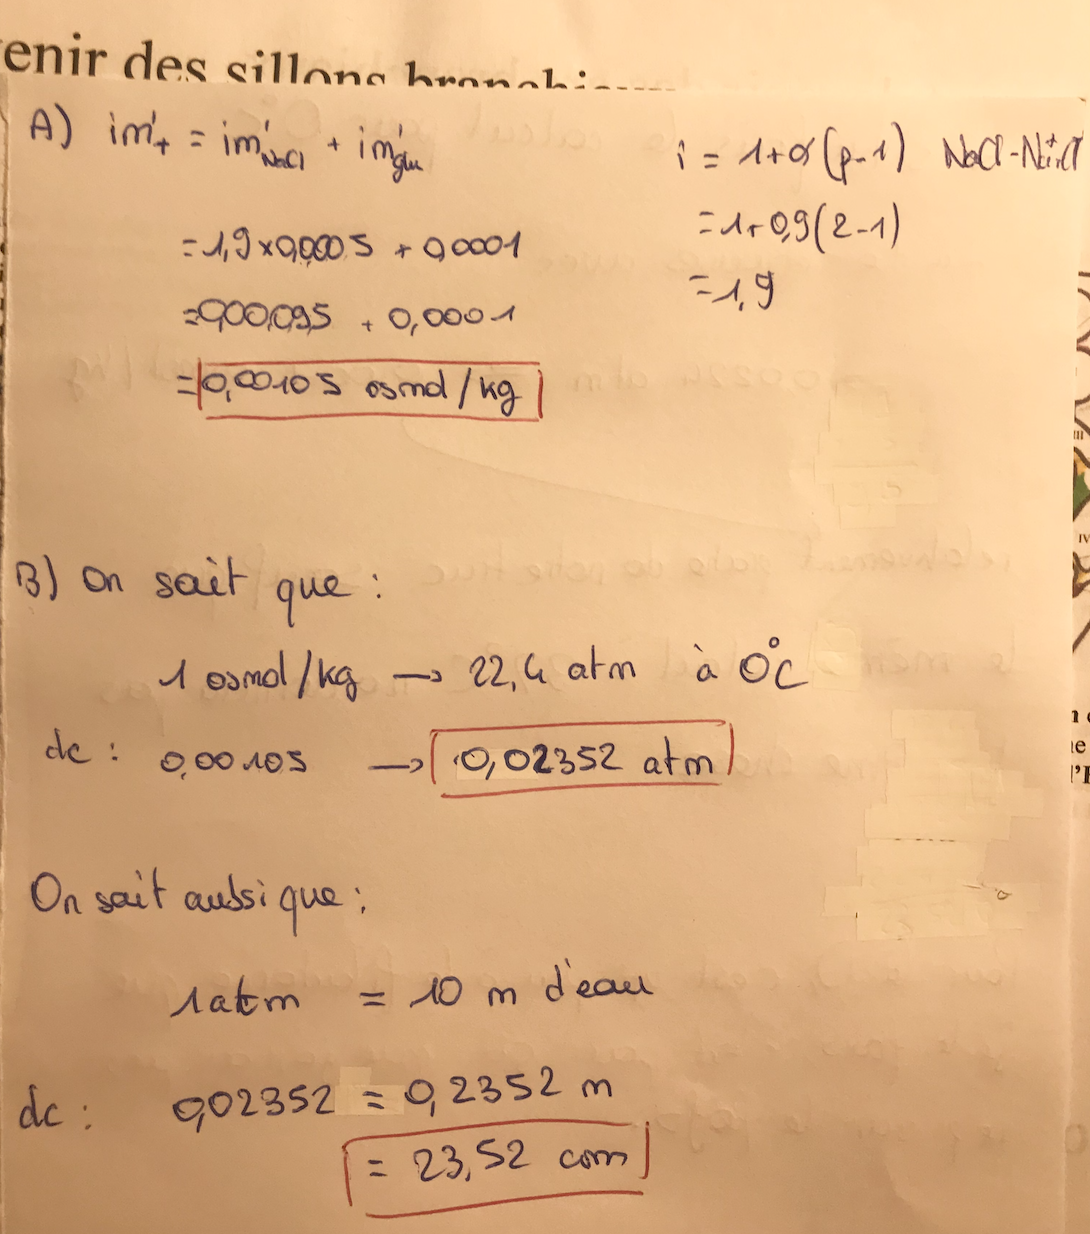 enir des sillons branchi
A) im'+ = im'NaCl + im'glu
i = 1+α(p-1) NaCl-Na+Cl-
= 1,9×0,0005 + 0,0001
= 1+0,9(2-1)
= 0,00095 + 0,0001
= 1,9
= 0,00105 osmol/kg
B) On sait que :
1 osmol/kg → 22,4 atm à 0°C
dc : 0,00105 → 0,02352 atm
On sait aussi que :
1 atm = 10 m d'eau
dc : 0,02352 = 0,2352 m
= 23,52 com
IV